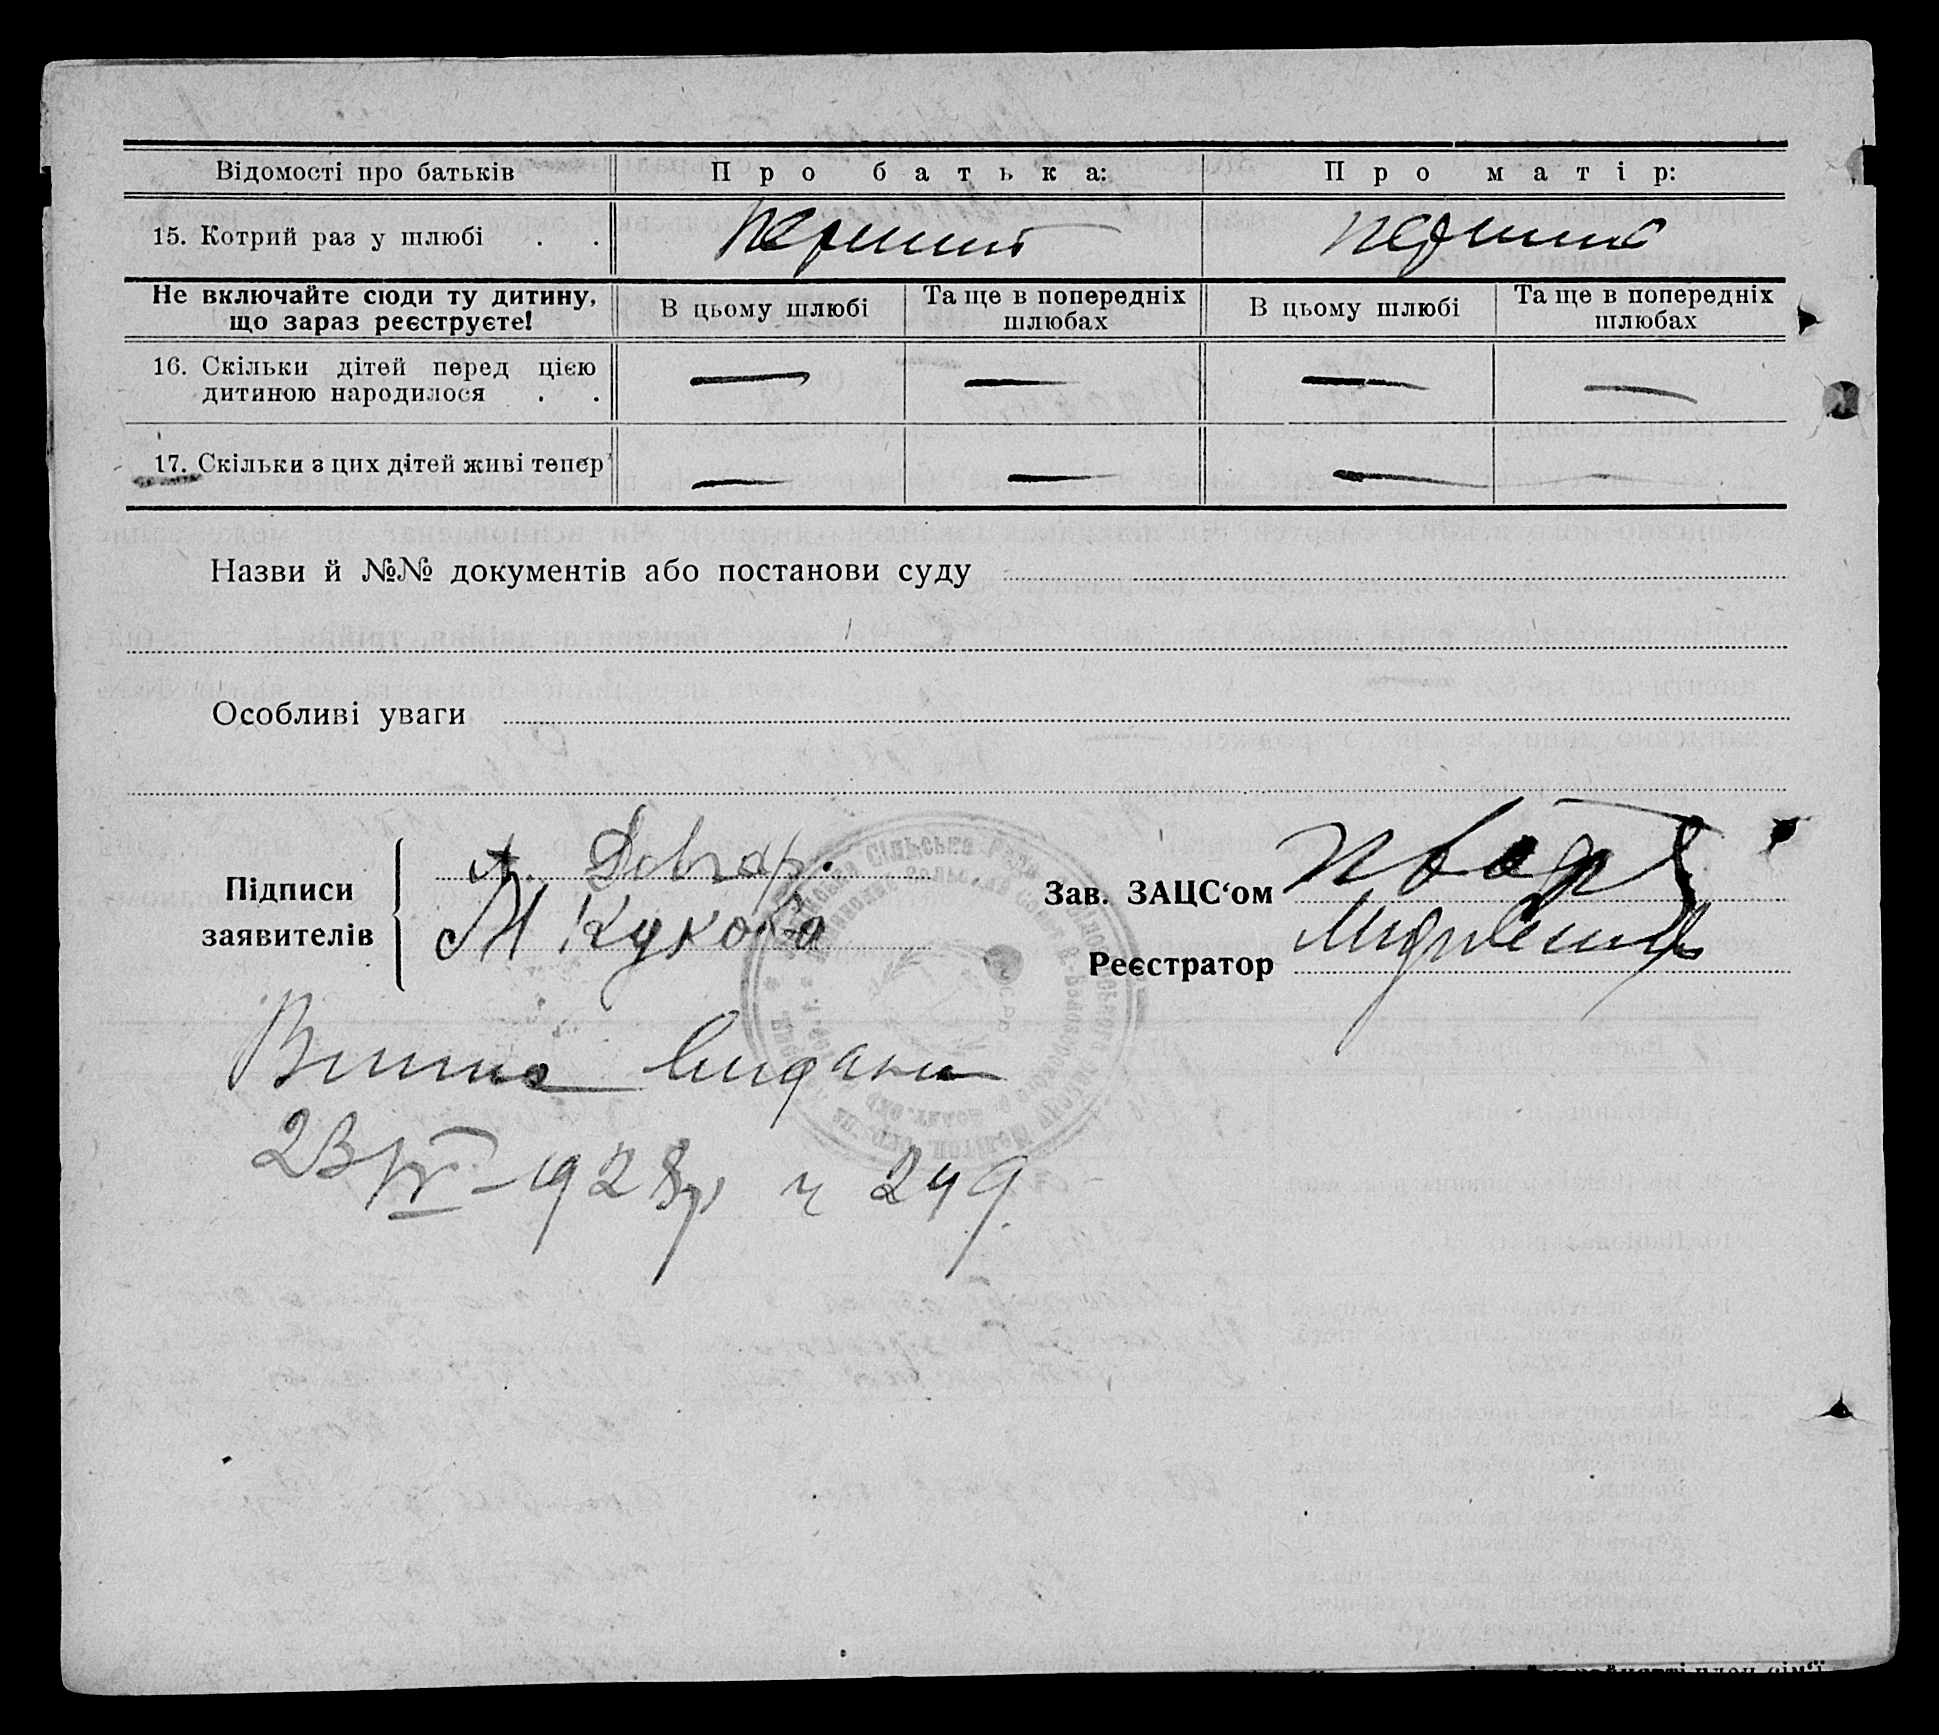 Відомості про батьків
Про батька:
Про матір:
15. Котрий раз у шлюбі . .
Перший
перший
Не включайте сюди ту дитину,
що зараз реєструєте!
В цьому шлюбі
Та ще в попередніх
шлюбах
В цьому шлюбі
Та ще в попередніх
шлюбах
16. Скільки дітей перед цією
дитиною народилося . .
17. Скільки з цих дітей живі тепер
Назви й №№ документів або постанови суду
Особливі уваги
Підписи
заявителів
А. Довгар.
М Кукоба
Зав. ЗАЦС‘ом
Реєстратор
видана
23/IV-1928р ч 249.